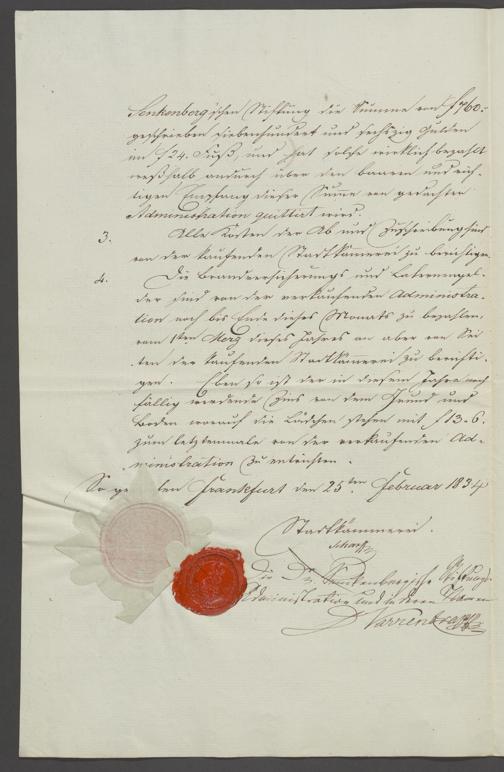 Senkenberg'schen Stiftung die Summe von f 760.
geschrieben Siebenhundert und sechszig Gulden
im f 24. Fuß, und hat solche wirklich bezahlt
weßhalb andurch über den baaren und rich-
tigen Empfang dieser Summe von gedachter
Administration quittirt wird.
3. Alle Kosten der Ab und Zuschreibung sind
von der kaufenden Stadtkämmerei zu berichtigen
4. Die Brandversicherungs und Laternengel-
der sind von der verkaufenden Administra-
tion noch bis Ende dieses Monats zu bezahlen,
vom 1ten Merz dieses Jahres an aber von Sei-
ten der kaufenden Stadtkämmerei zu berichti-
gen. Eben so ist der in diesem Jahre noch
fällig werdende Zins von dem Grund und
Boden worauf die Lädchen stehen mit f 13.6.
zum letztenmale von der verkaufenden Ad-
ministration zu entrichten.
Frankfurt den 25ten Februar 1834
Stadtkämmerei.
Scharff
Die Dr. Senckenbergische Stiftungs
Administration und in deren Namen
Dr Varrentrapp